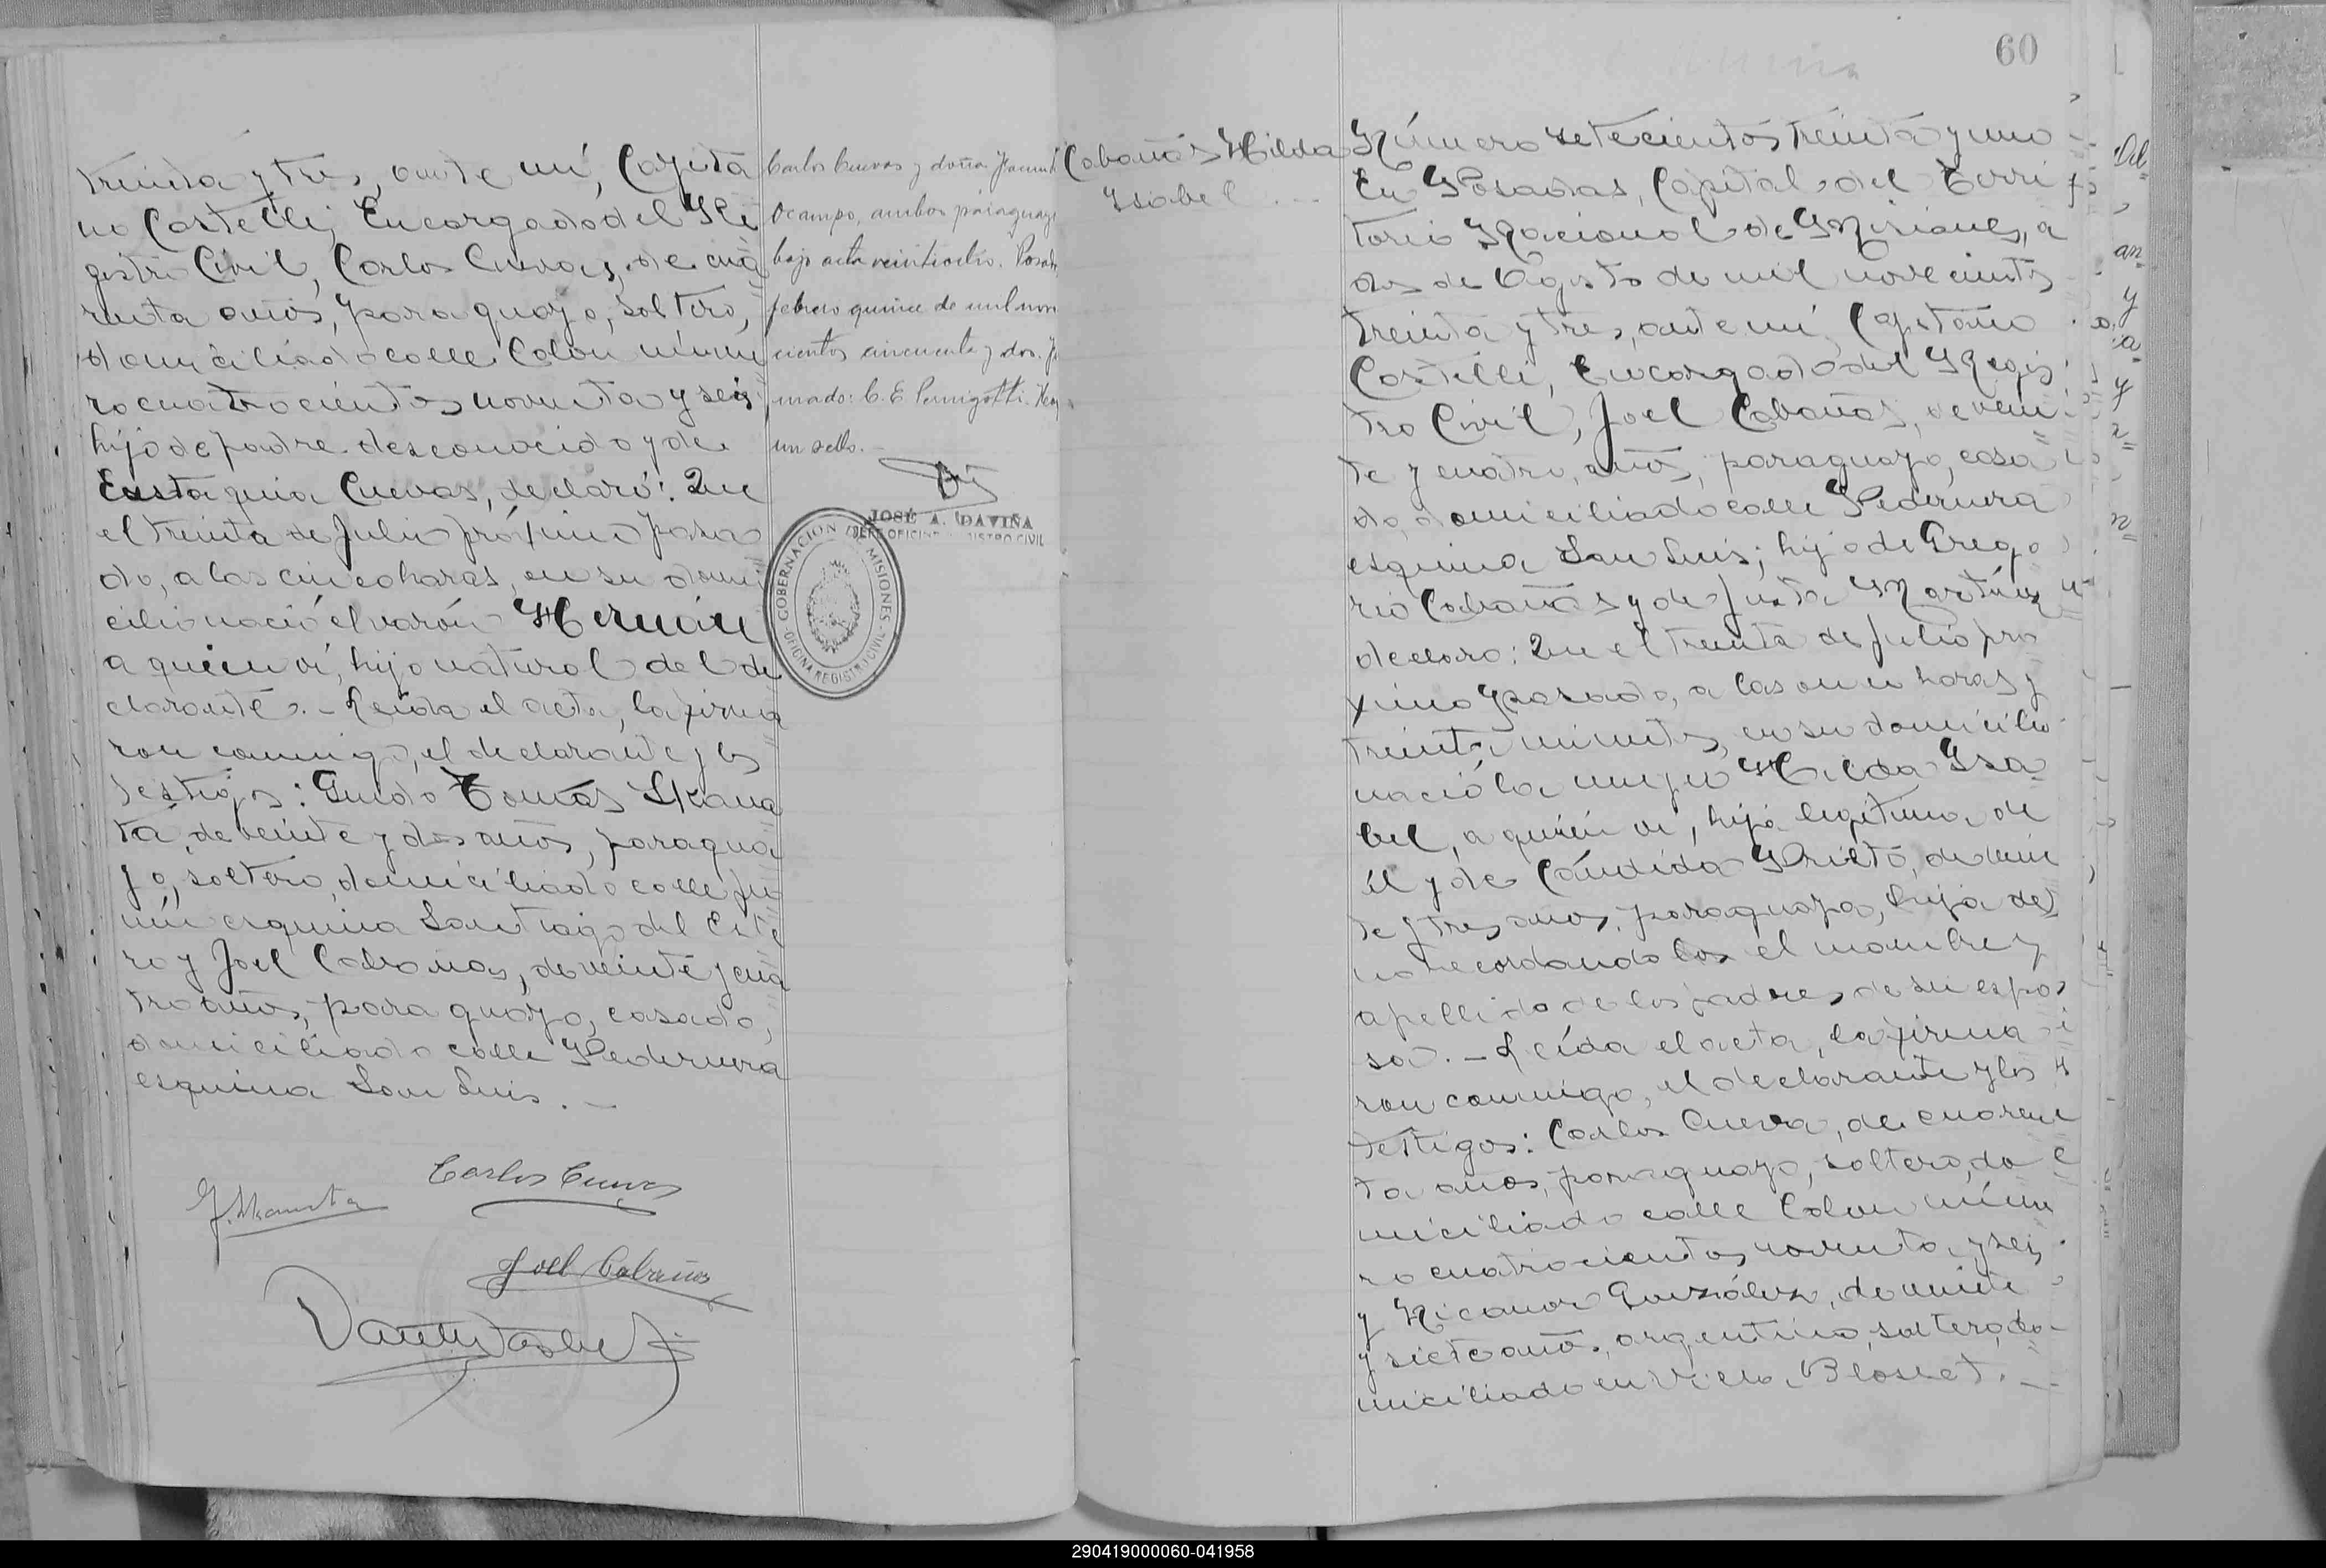 treinta y tres, ante mí, Cayeta
no Castelli, Encargado del Re
gistro Civil, Carlos Cuevas, de cua
renta años, paraguayo, soltero,
domiciliado calle Colon núme
ro cuatrocientos noventa y seis
hijo de padre desconocido y de
Eustaquia Cuevas, declaró: Que
el treinta de Julio próximo pasa
do, a las cinco horas, en su domi
cilio nació el varón Hernán
a quien ví, hijo natural del de
clarante. - Leída el acta, la firma
ron conmigo, el declarante y los
testigos: Guido Tomás
de veinte y dos años, paragua
yo, soltero, domiciliado calle Ju
nín esquina Santiago del Este
ro y Joel Cabañas, de veinte y cua
tro años, paraguayo, casado,
domiciliado calle Pedernera
esquina San Luis. -
Carlos Cuevas
Joel Cabañas
Carlos Cuevas y doña
Ocampo, ambos paraguayos
bajo acta veintiocho. Posadas
febrero quince de mil nove
cientos cincuenta y dos. Fir
mado: C. E. Hay
un sello. -
JOSÉ A. DAVIÑA
JEFE OFICINA REGISTRO CIVIL
GOBERNACION DE MISIONES
OFICINA REGISTRO CIVIL
60
Cabañas Hilda
Ysabel
Número setecientos treinta y uno
En Posadas, Capital del Terri
torio Nacional de Misiones, a
dos de Agosto de mil novecientos
treinta y tres, ante mí Cayetano
Castelli, Encargado del Regis
tro Civil, Joel Cabañas, de vein
te y cuatro, años, paraguayo, casa
do, domiciliado calle Pedernera
esquina San Luis; hijo de Grego
rio Cabañas y de Justa Martínez
declaro: Que el treinta de Julio pro
ximo pasado, a las once horas y
treinta minutos, en su domicilio
nació la mujer Hilda Ysa
bel, a quien ví, hija legítima de
él y de Cándida Prieto, de vein
te y tres años, paraguaya, hija de
no recordando los el nombre y
apellido de los padres de su espo
sa. - Leída el acta, la firma
ron conmigo, el declarante y los
testigos: Carlos Cueva, de cuaren
ta años, paraguayo, soltero, do
miciliado calle Colon núme
ro cuatrocientos noventa y seis
y Nicanor González, de veinte
y siete años, argentino, soltero, do-
miciliado en Villa Blosset. -
290419000060-041958